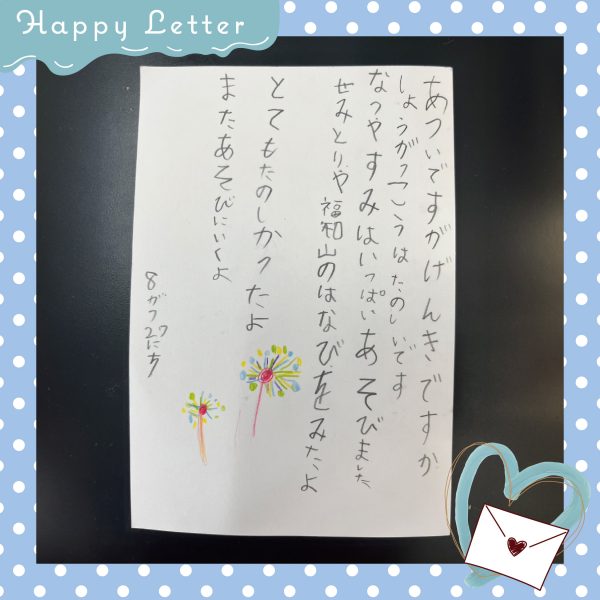 Happy Letter
あついですがげんきですか
しょうがっこうはたのしいです
なつやすみはいっぱいあそびました
せみとりや福知山のはなびをみたよ
とてもたのしかったよ
また、あそびにいくよ
8がつ27にち